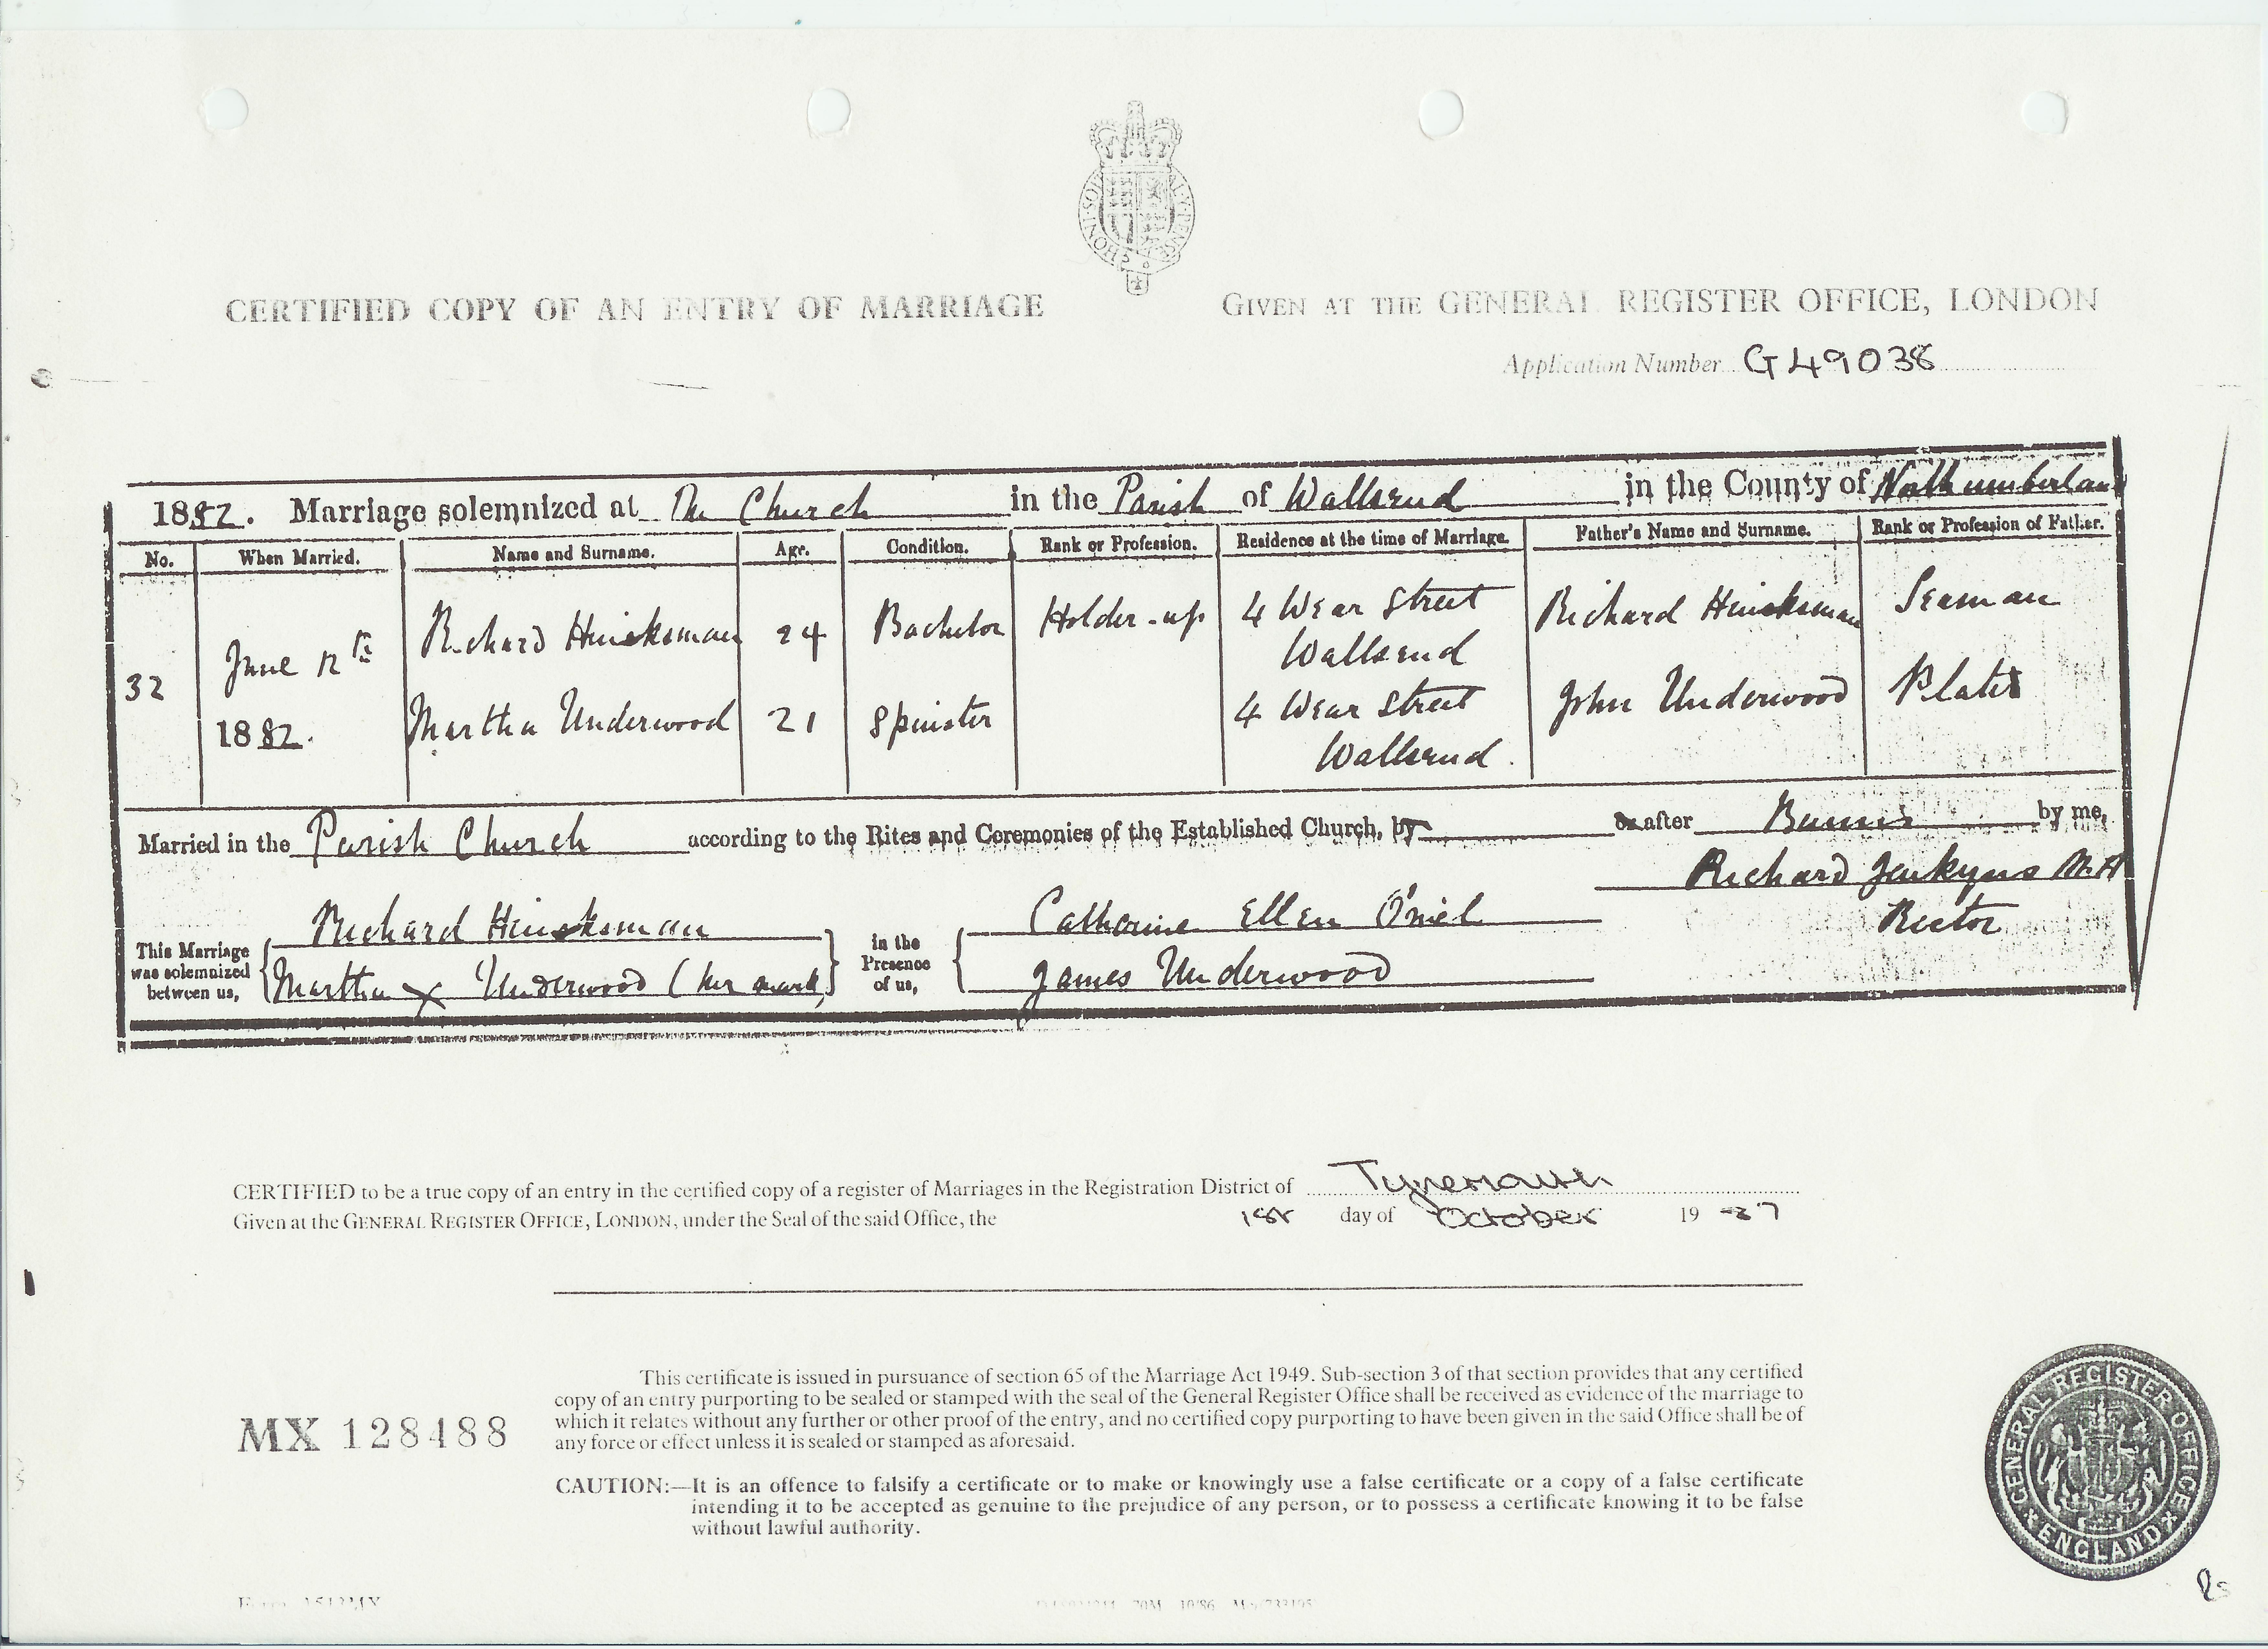 CERTIFIED COPY OF AN ENTRY OF MARRIAGE
GIVEN AT THE GENERAL REGISTER OFFICE, LONDON
Application Number G 49038
1882. Marriage solemnized at The Church in the Parish of Wallsend in the County of Northumberland
No. When Married. Name and Surname. Age. Condition. Rank or Profession. Residence at the time of Marriage. Father's Name and Surname. Rank or Profession of Father.
32 June 12th 1882. Richard Hinksman 24 Bachelor Holder-up 4 Wear Street Wallsend Richard Hinksman Seaman
Martha Underwood 21 Spinster 4 Wear Street Wallsend. John Underwood Plater
Married in the Parish Church according to the Rites and Ceremonies of the Established Church, by or after Banns by me,
Richard Jenkyns M.A
Rector
This Marriage was solemnized between us,
Richard Hinksman
Martha X Underwood (her mark)
in the Presence of us,
Catherine Ellen O'niel
James Underwood
CERTIFIED to be a true copy of an entry in the certified copy of a register of Marriages in the Registration District of Tynemouth
Given at the GENERAL REGISTER OFFICE, LONDON, under the Seal of the said Office, the 1st day of October 19 87
This certificate is issued in pursuance of section 65 of the Marriage Act 1949. Sub-section 3 of that section provides that any certified
copy of an entry purporting to be sealed or stamped with the seal of the General Register Office shall be received as evidence of the marriage to
which it relates without any further or other proof of the entry, and no certified copy purporting to have been given in the said Office shall be of
any force or effect unless it is sealed or stamped as aforesaid.
MX 128488
CAUTION:—It is an offence to falsify a certificate or to make or knowingly use a false certificate or a copy of a false certificate
intending it to be accepted as genuine to the prejudice of any person, or to possess a certificate knowing it to be false
without lawful authority.
GENERAL REGISTER OFFICE
ENGLAND